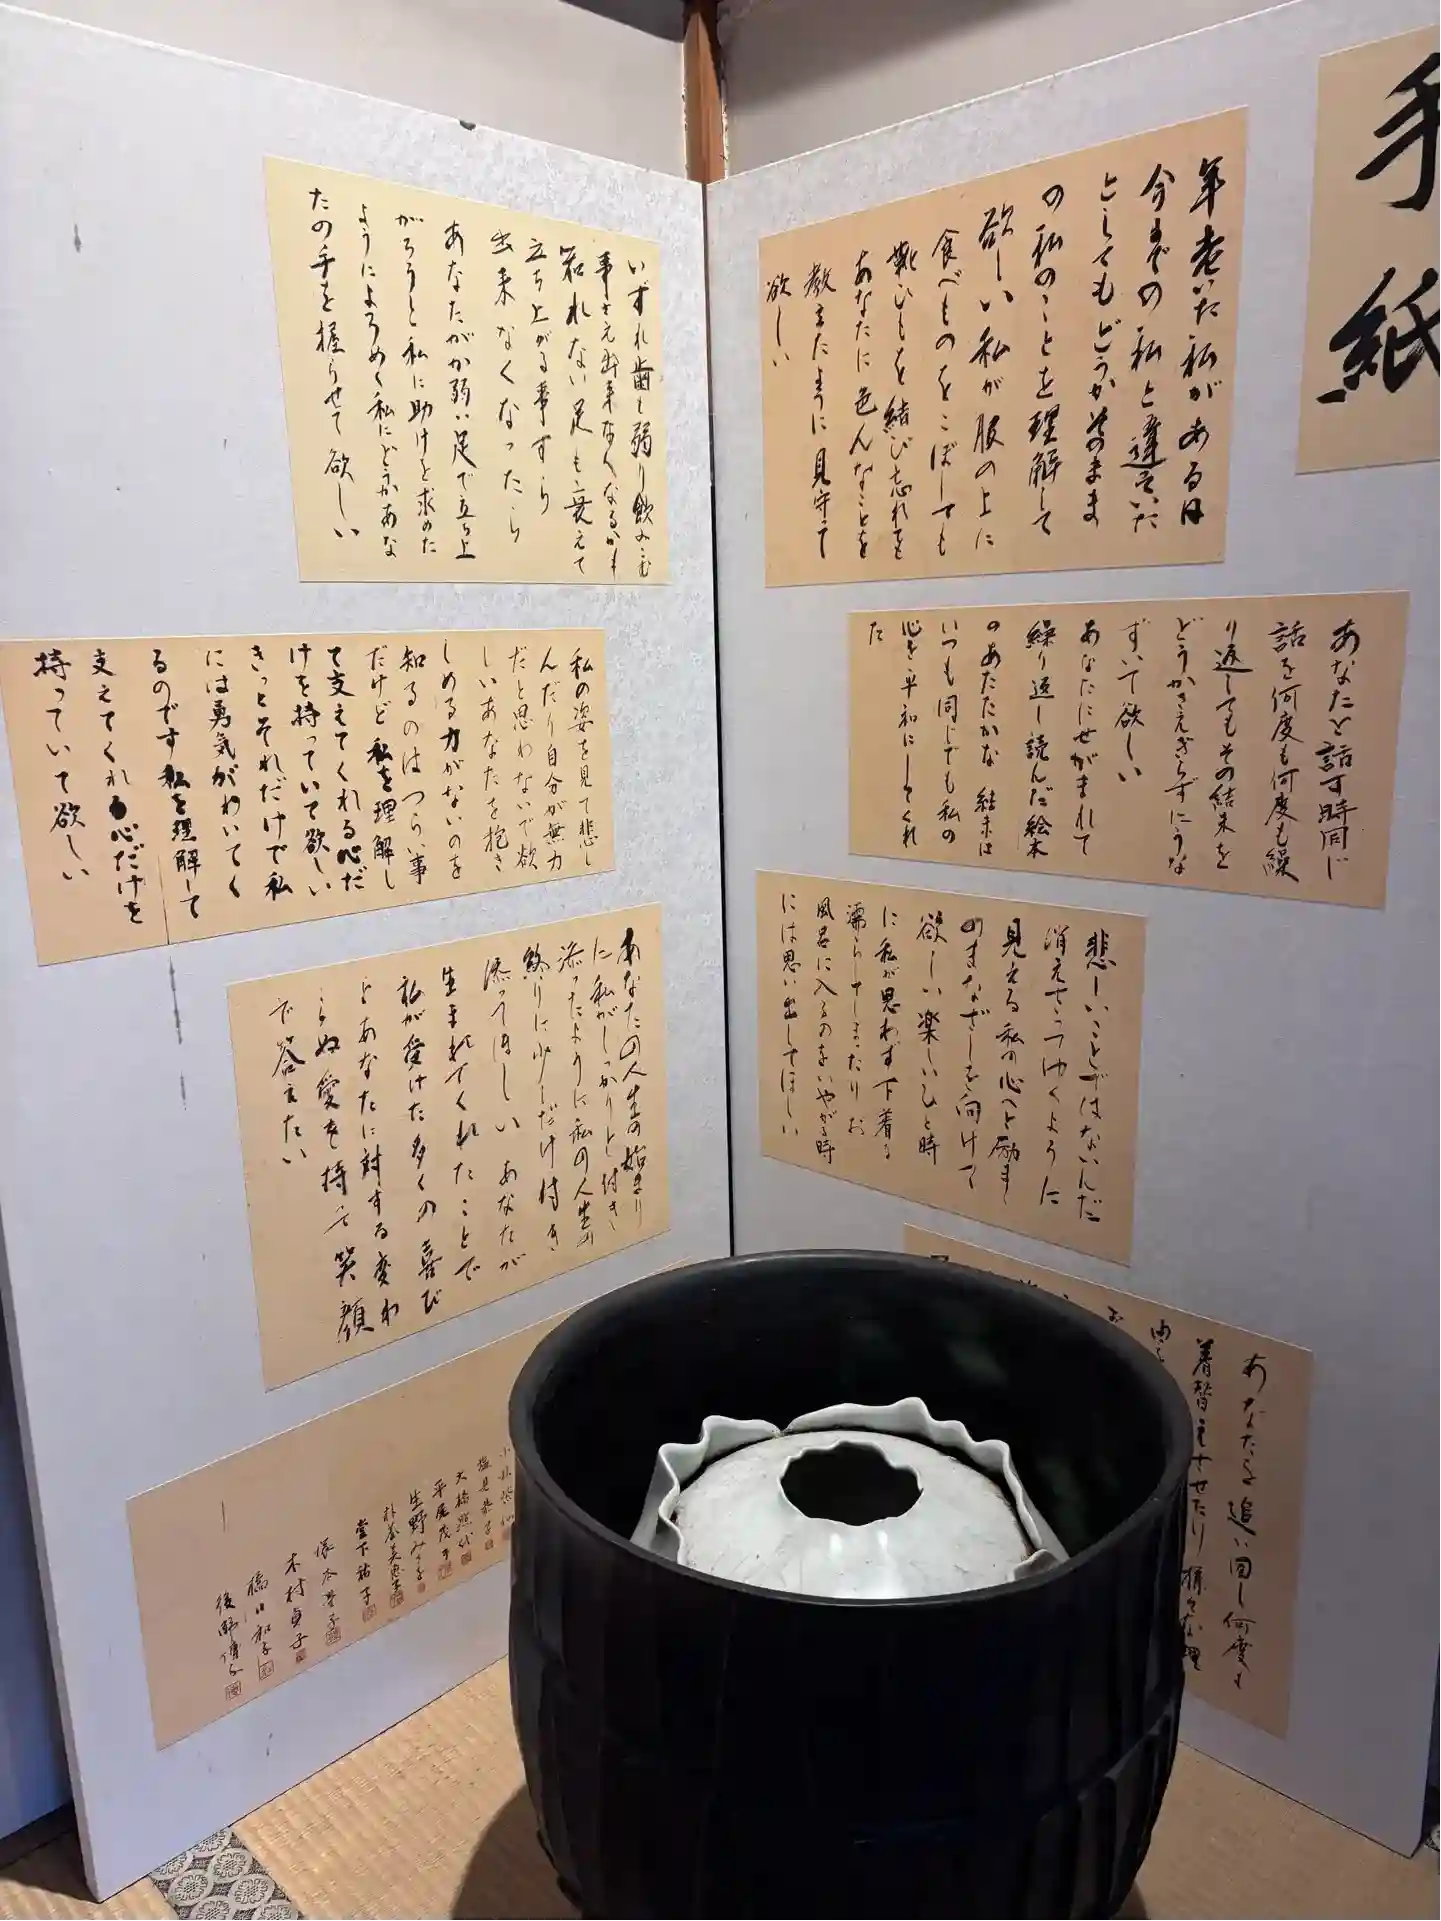 手紙
年老いた私がある日
今までの私と違っていた
としてもどうかそのまま
の私のことを理解して
欲しい私が服の上に
食べものをこぼしても
靴ひもを結び忘れても
あなたに色んなことを
教えたように見守って
欲しい
あなたと話す時同じ
話を何度も何度も繰
り返してもその結末を
どうかさえぎらずにうな
ずいて欲しい
あなたにせがまれて
繰り返し読んだ絵本
のあたたかな結末は
いつも同じでも私の
心を平和にしてくれ
た
悲しいことではないんだ
消えてゆくように
見える私の心へと励まし
のまなざしを向けて
欲しい楽しいひと時
に私が思わず下着を
濡らしてしまったりお
風呂に入るのをいやがる時
には思い出してほしい
あなたを追い回し何度も
着替えさせたり様々な理
由
いずれ歯も弱り飲みこむ
事さえ出来なくなるかも
知れない足も衰えて
立ち上がる事すら
出来なくなったら
あなたがか弱い足で立ち上
がろうと私に助けを求めた
ようによろめく私にどうかあな
たの手を握らせて欲しい
私の姿を見て悲し
んだり自分が無力
だと思わないで欲
しいあなたを抱き
しめる力がないのを
知るのはつらい事
だけど私を理解し
て支えてくれる心だ
けを持っていて欲しい
きっとそれだけで私
には勇気がわいてく
るのです私を理解して
支えてくれる心だけを
持っていて欲しい
あなたの人生の始まり
に私がしっかりと付き
添ったように私の人生の
終りに少しだけ付き
添ってほしいあなたが
生まれてくれたことで
私が受けた多くの喜び
とあなたに対する変わ
らぬ愛を持って笑顔
で答えたい
生野みさ子
堂下祐子
木村貞子